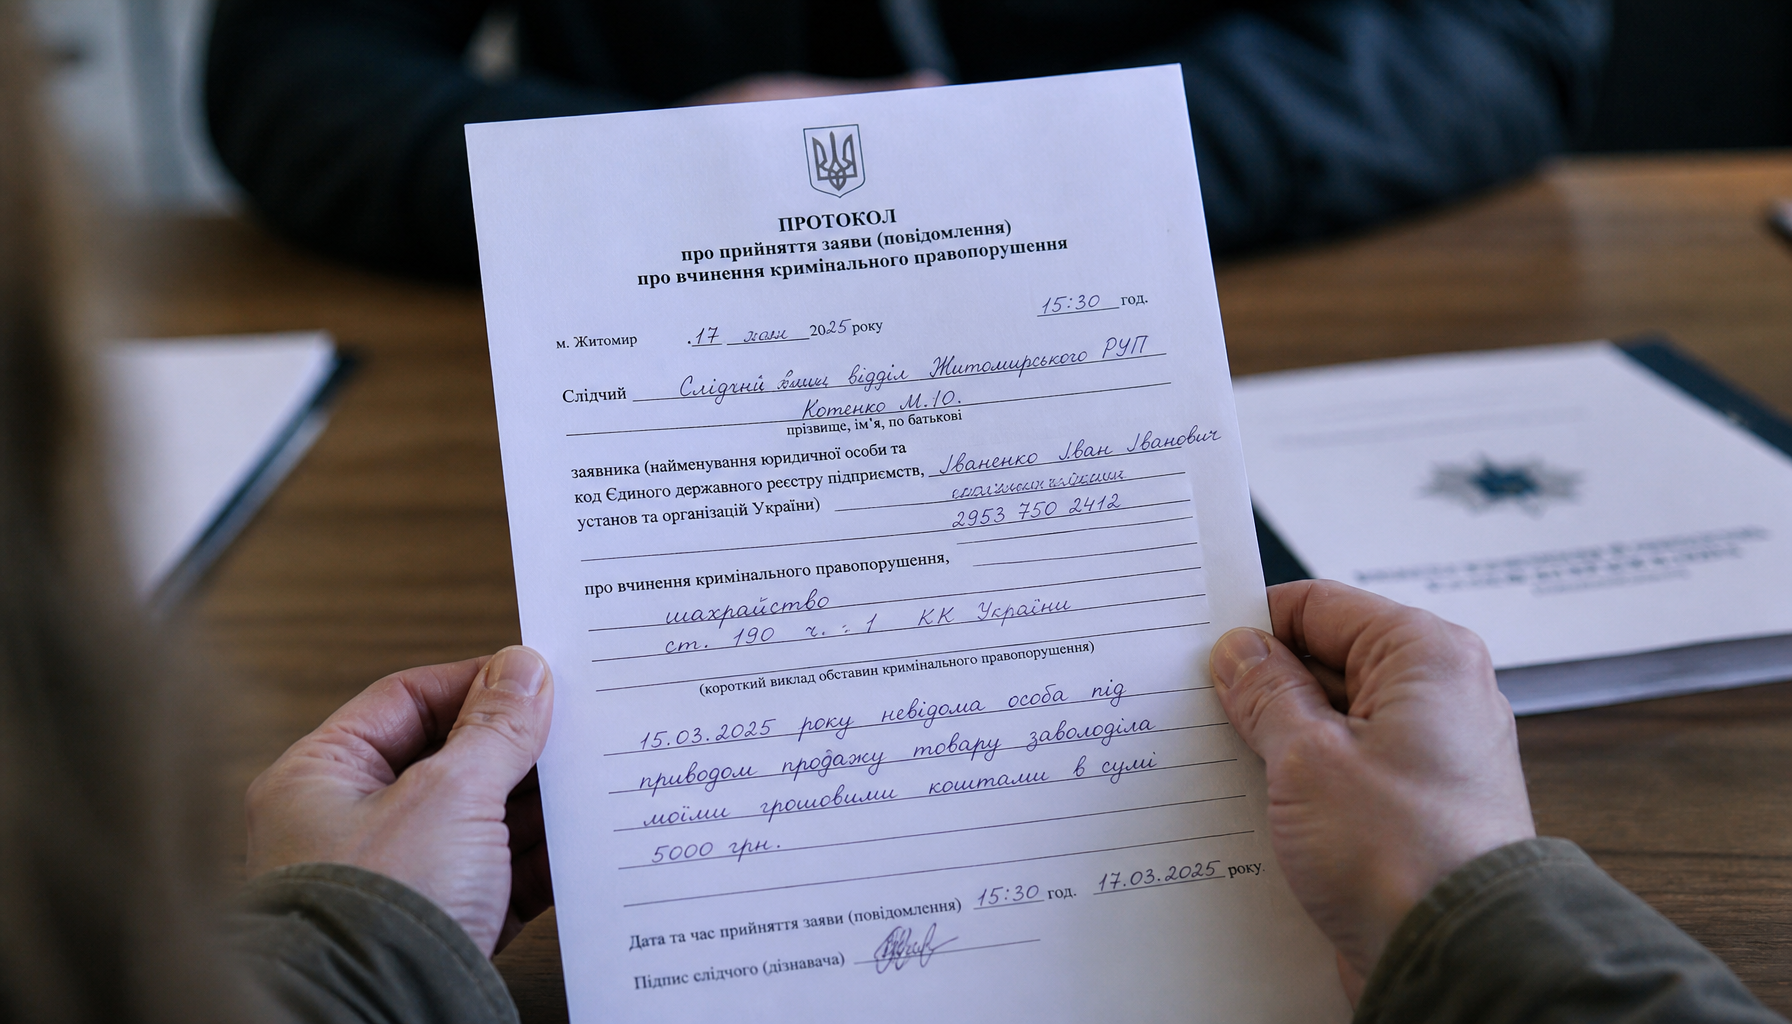 ПРОТОКОЛ
про прийняття заяви (повідомлення)
про вчинення кримінального правопорушення
15:30 год.
м. Житомир 17 2025 року
Слідчий Слідчий відділ Житомирського РУП
Котенко М.Ю.
прізвище, ім'я, по батькові
заявника (найменування юридичної особи та
код Єдиного державного реєстру підприємств, Іваненко Іван Іванович
установ та організацій України)
2953 750 2412
про вчинення кримінального правопорушення,
шахрайство
ст. 190 ч. : 1 КК України
(короткий виклад обставин кримінального правопорушення)
15.03.2025 року невідома особа під
приводом продажу товару заволоділа
моїми грошовими коштами в сумі
5000 грн.
Дата та час прийняття заяви (повідомлення) 15:30 год. 17.03.2025 року.
Підпис слідчого (дізнавача)